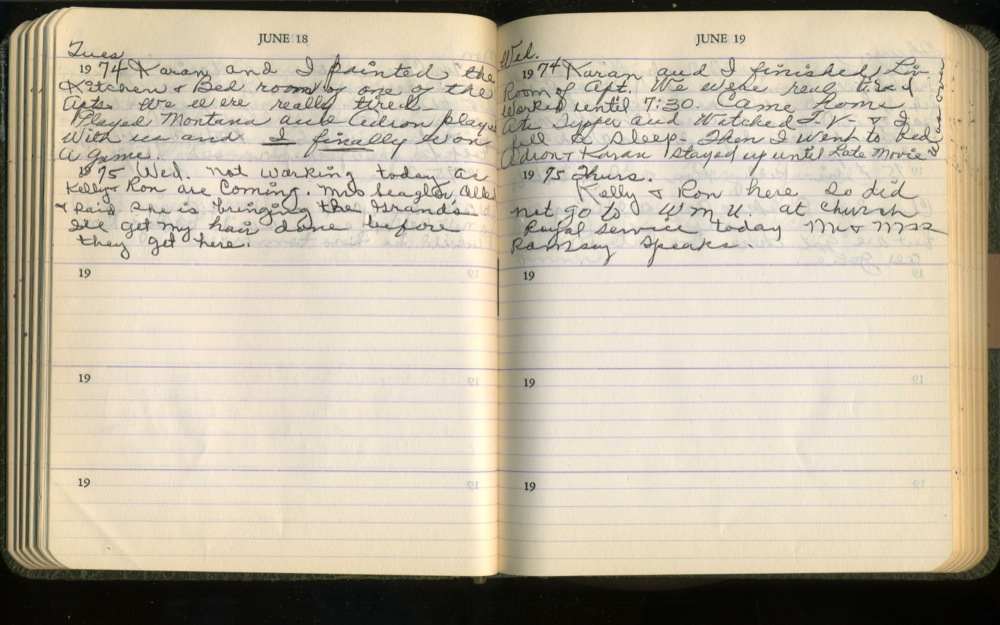 JUNE 18
Tues
1974 Karan and I painted the
Kitchen + Bed room of one of the
Apts. We were really tired.
Played Montana and Adron played
with us and I finally won
a game.
1975 Wed. not working today as
Kelly + Ron are coming. Mrs Seagler called
+ said she is bringing the Grands.
I'll get my hair done before
they get here.
19
19
19
JUNE 19
Wed.
1974 Karan and I finished Liv
Room of Apt. We were real tired
Worked until 7:30. Came home
Ate Supper and Watched T.V. + I
fell to sleep. Then I went to Bed
Adron + Karan stayed up until Late Movie
1975 Thurs.
Kelly + Ron here so did
not go to W M U. at Church
Royal service today Mr + Mrs
Ramsey speaks.
19
19
19